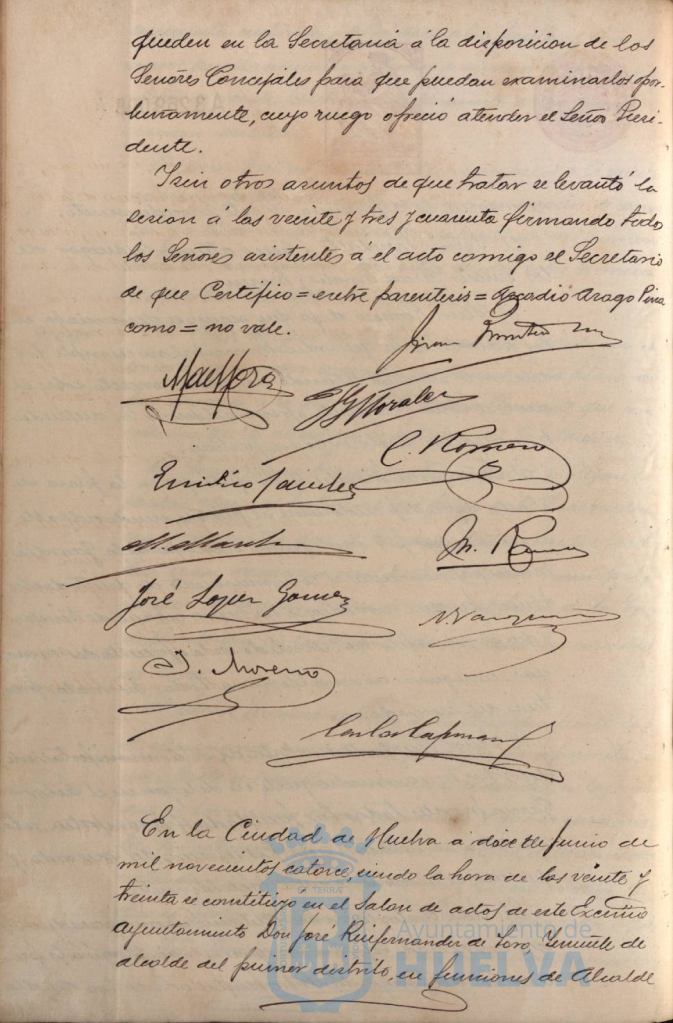 queden en la Secretaria á la disposicion de los
Señores Concejales para que puedan examinarlos opor-
tunamente, cuyo ruego ofreció atender el Señor Presi-
dente.
Y sin otros asuntos de que tratar se levantó la
sesion á las veinte y tres y cuarenta firmando todos
los Señores asistentes á el acto conmigo el Secretario
de que Certifico = entre parentesis =
como = no vale.
J. Morales
C. Romero
Emilio
M.
José Lopez Gomez
J. Moreno
Carlos
En la Ciudad de Huelva á doce de Junio de
mil novecientos catorce, siendo la hora de las veinte y
treinta se constituyó en el Salon de actos de este Excmo
Ayuntamiento Don José Ruifernandez de Toro Teniente de
alcalde del primer distrito, en funciones de Alcalde
Ayuntamiento de
HUELVA